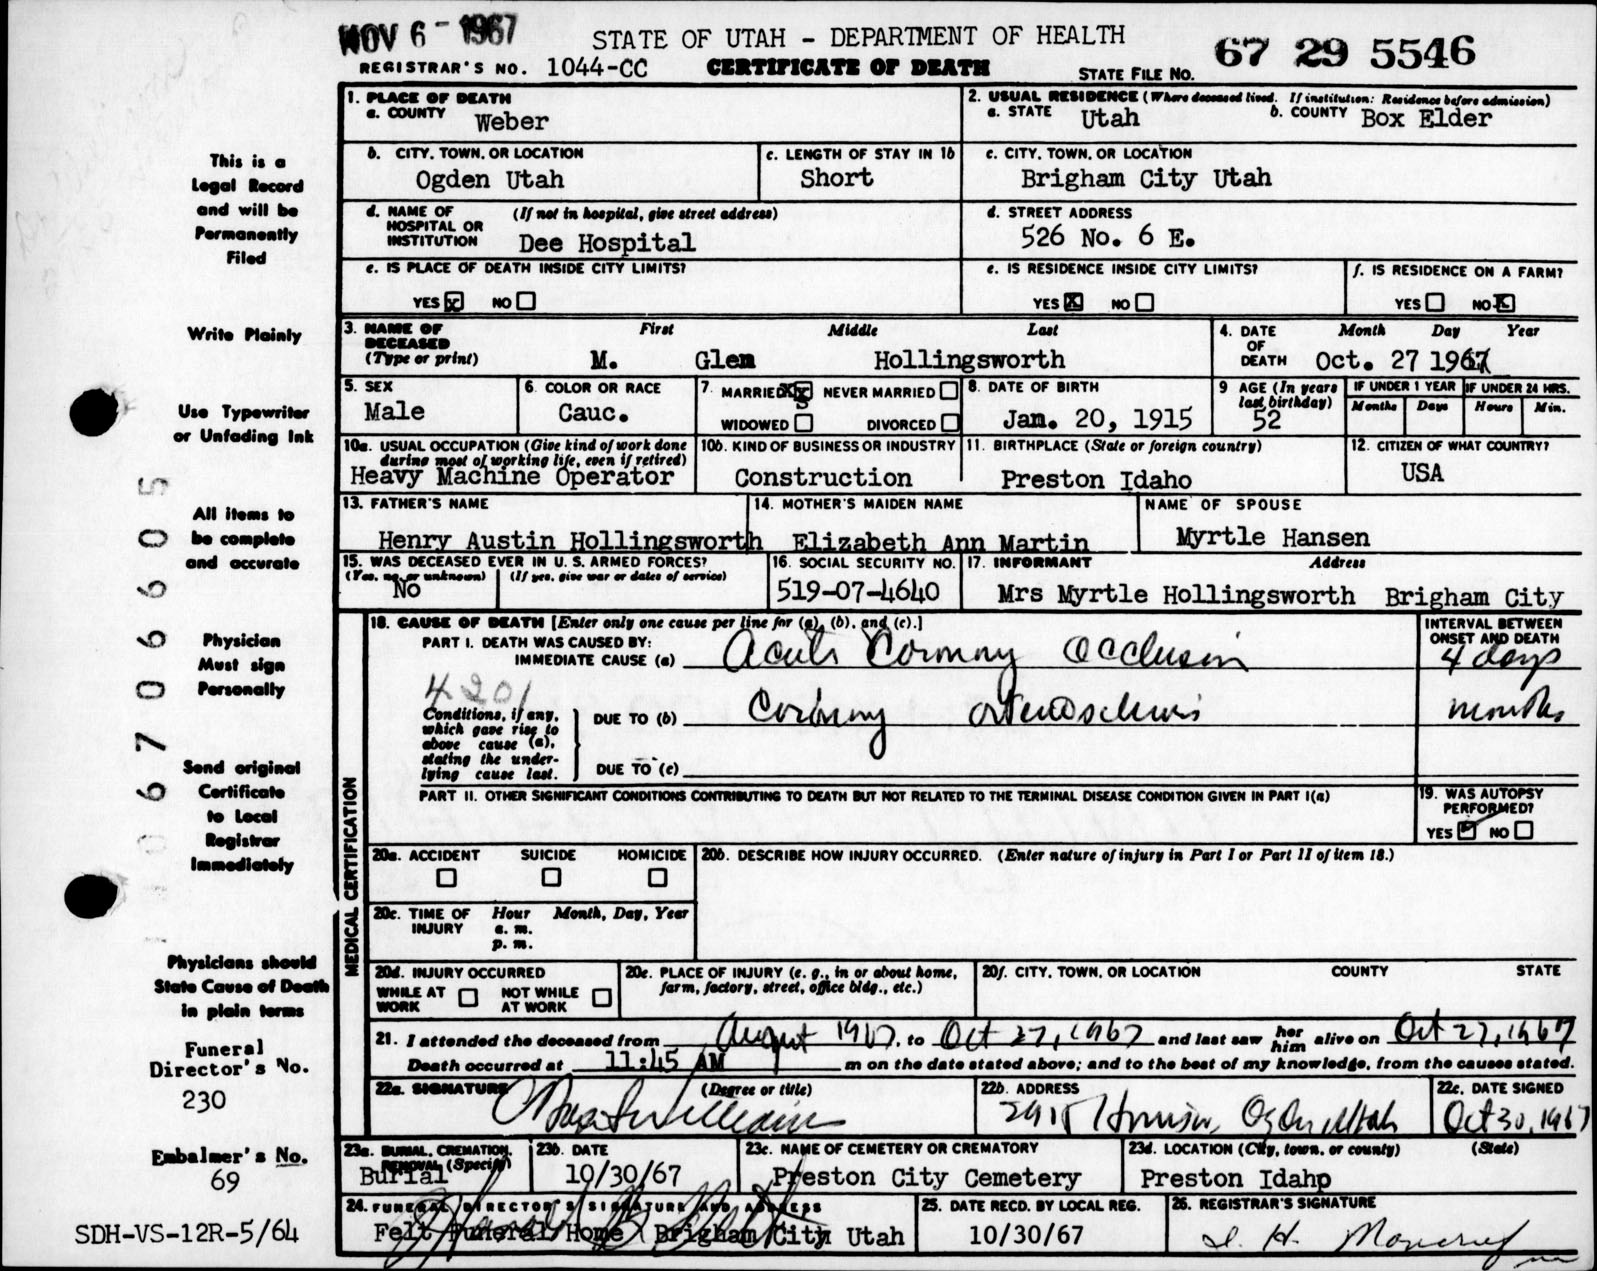 NOV 6 - 1967
STATE OF UTAH - DEPARTMENT OF HEALTH
67 29 5546
REGISTRAR'S NO. 1044-CC
CERTIFICATE OF DEATH
STATE FILE NO.
1. PLACE OF DEATH
a. COUNTY Weber
2. USUAL RESIDENCE (Where deceased lived. If institution: Residence before admission)
a. STATE Utah b. COUNTY Box Elder
b. CITY, TOWN, OR LOCATION
Ogden Utah
c. LENGTH OF STAY IN 1b
Short
c. CITY, TOWN, OR LOCATION
Brigham City Utah
d. NAME OF HOSPITAL OR INSTITUTION (If not in hospital, give street address)
Dee Hospital
d. STREET ADDRESS
526 No. 6 E.
e. IS PLACE OF DEATH INSIDE CITY LIMITS?
YES X NO
e. IS RESIDENCE INSIDE CITY LIMITS?
YES X NO
f. IS RESIDENCE ON A FARM?
YES NO X
3. NAME OF DECEASED (Type or print)
First Middle Last
M. Glen Hollingsworth
4. DATE OF DEATH
Month Day Year
Oct. 27 1967
5. SEX
Male
6. COLOR OR RACE
Cauc.
7. MARRIED X NEVER MARRIED
WIDOWED DIVORCED
8. DATE OF BIRTH
Jan. 20, 1915
9 AGE (In years last birthday)
52
IF UNDER 1 YEAR
Months Days
IF UNDER 24 HRS.
Hours Min.
10a. USUAL OCCUPATION (Give kind of work done during most of working life, even if retired)
Heavy Machine Operator
10b. KIND OF BUSINESS OR INDUSTRY
Construction
11. BIRTHPLACE (State or foreign country)
Preston Idaho
12. CITIZEN OF WHAT COUNTRY?
USA
13. FATHER'S NAME
Henry Austin Hollingsworth
14. MOTHER'S MAIDEN NAME
Elizabeth Ann Martin
NAME OF SPOUSE
Myrtle Hansen
15. WAS DECEASED EVER IN U. S. ARMED FORCES?
(Yes, no, or unknown) (If yes, give war or dates of service)
No
16. SOCIAL SECURITY NO.
519-07-4640
17. INFORMANT Address
Mrs Myrtle Hollingsworth Brigham City
MEDICAL CERTIFICATION
18. CAUSE OF DEATH [Enter only one cause per line for (a), (b), and (c).]
PART I. DEATH WAS CAUSED BY:
IMMEDIATE CAUSE (a) Acute Coronary Occlusion
INTERVAL BETWEEN ONSET AND DEATH
4 days
4201
Conditions, if any, which gave rise to above cause (a), stating the underlying cause last.
DUE TO (b) Coronary arteriosclerosis
months
DUE TO (c)
PART II. OTHER SIGNIFICANT CONDITIONS CONTRIBUTING TO DEATH BUT NOT RELATED TO THE TERMINAL DISEASE CONDITION GIVEN IN PART I(a)
19. WAS AUTOPSY PERFORMED?
YES NO
20a. ACCIDENT SUICIDE HOMICIDE
20b. DESCRIBE HOW INJURY OCCURRED. (Enter nature of injury in Part I or Part II of item 18.)
20c. TIME OF INJURY
Hour Month, Day, Year
a. m.
p. m.
20d. INJURY OCCURRED
WHILE AT WORK NOT WHILE AT WORK
20e. PLACE OF INJURY (e. g., in or about home, farm, factory, street, office bldg., etc.)
20f. CITY, TOWN, OR LOCATION COUNTY STATE
21. I attended the deceased from August 1967, to Oct 27, 1967 and last saw her him alive on Oct 27, 1967
Death occurred at 11:45 AM m on the date stated above; and to the best of my knowledge, from the causes stated.
22a. SIGNATURE (Degree or title)
22b. ADDRESS
Ogden Utah
22c. DATE SIGNED
Oct 30, 1967
23a. BURIAL, CREMATION, REMOVAL (Specify)
Burial
23b. DATE
10/30/67
23c. NAME OF CEMETERY OR CREMATORY
Preston City Cemetery
23d. LOCATION (City, town, or county) (State)
Preston Idaho
24. FUNERAL DIRECTOR'S SIGNATURE AND ADDRESS
Felt Funeral Home Brigham City Utah
25. DATE RECD. BY LOCAL REG.
10/30/67
26. REGISTRAR'S SIGNATURE
This is a
Legal Record
and will be
Permanently
Filed
Write Plainly
Use Typewriter
or Unfading Ink
All items to
be complete
and accurate
Physician
Must sign
Personally
Send original
Certificate
to Local
Registrar
Immediately
Physicians should
State Cause of Death
in plain terms
Funeral
Director's No.
230
Embalmer's No.
69
SDH-VS-12R-5/64
06706605